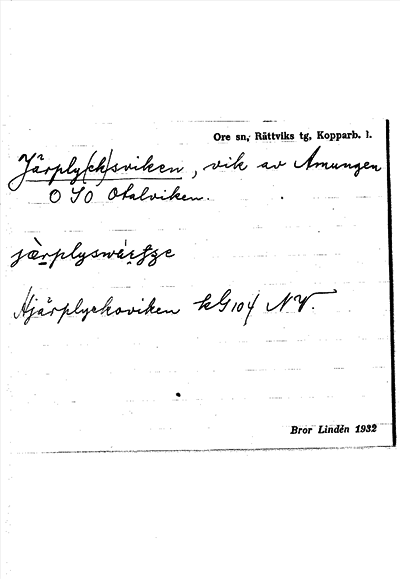 Ore sn, Rättviks tg, Kopparb. l.
Järply(ck)sviken, vik av Amungen
O S O Oталviken.
Hjärplyckoviken kG 104 NV.
Bror Lindén 1932